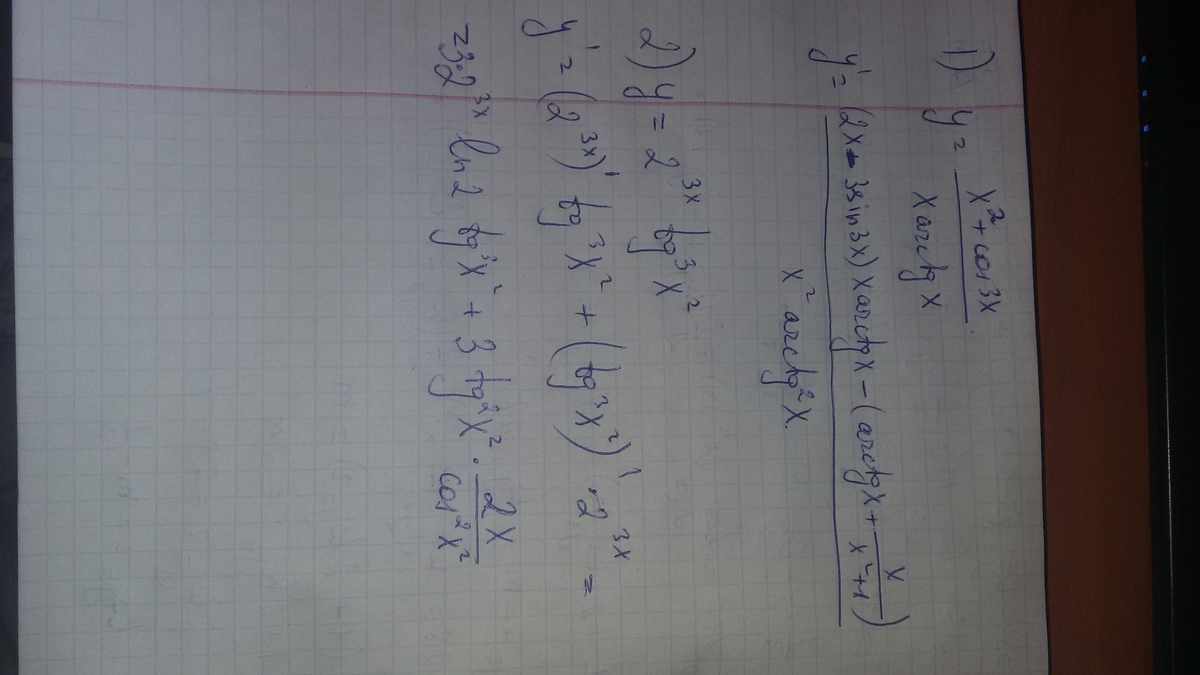 1) y = (x² + cos 3x) / (x arctg x)
y' = ((2x - 3sin 3x) x arctg x - (arctg x + x / (x² + 1))) / (x² arctg² x.)
2) y = 2^(3x) tg³ x²
y' = (2^(3x))' tg³ x² + (tg³ x²)' · 2^(3x) =
= 3·2^(3x) ln 2 tg³ x² + 3 tg² x² · 2x / (cos² x²)